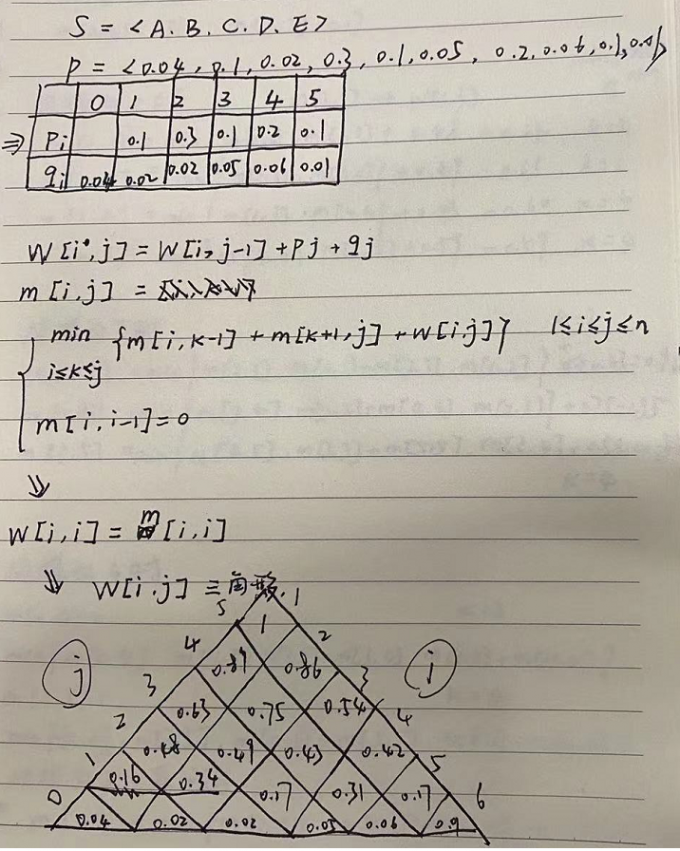 S = <A. B. C. D. E>
P = <0.04, 0.1, 0.02, 0.3, 0.1, 0.05, 0.2, 0.06, 0.1, 0.01>
0 1 2 3 4 5
⇒ Pi 0.1 0.3 0.1 0.2 0.1
qi 0.04 0.02 0.02 0.05 0.06 0.01
W[i,j] = W[i, j-1] + Pj + qj
m[i,j] =
min {m[i, k-1] + m[k+1, j] + W[i,j]} 1≤i≤j≤n
i≤k≤j
m[i, i-1] = 0
⇓
W[i,i] = m[i,i]
⇓ W[i.j] 三角形.
5 1
4 1 2
j 3 0.89 0.86 3 i
2 0.63 0.75 0.54 4
1 0.48 0.49 0.43 0.42 5
0 0.16 0.34 0.17 0.31 0.17 6
0.04 0.02 0.02 0.05 0.06 0.9